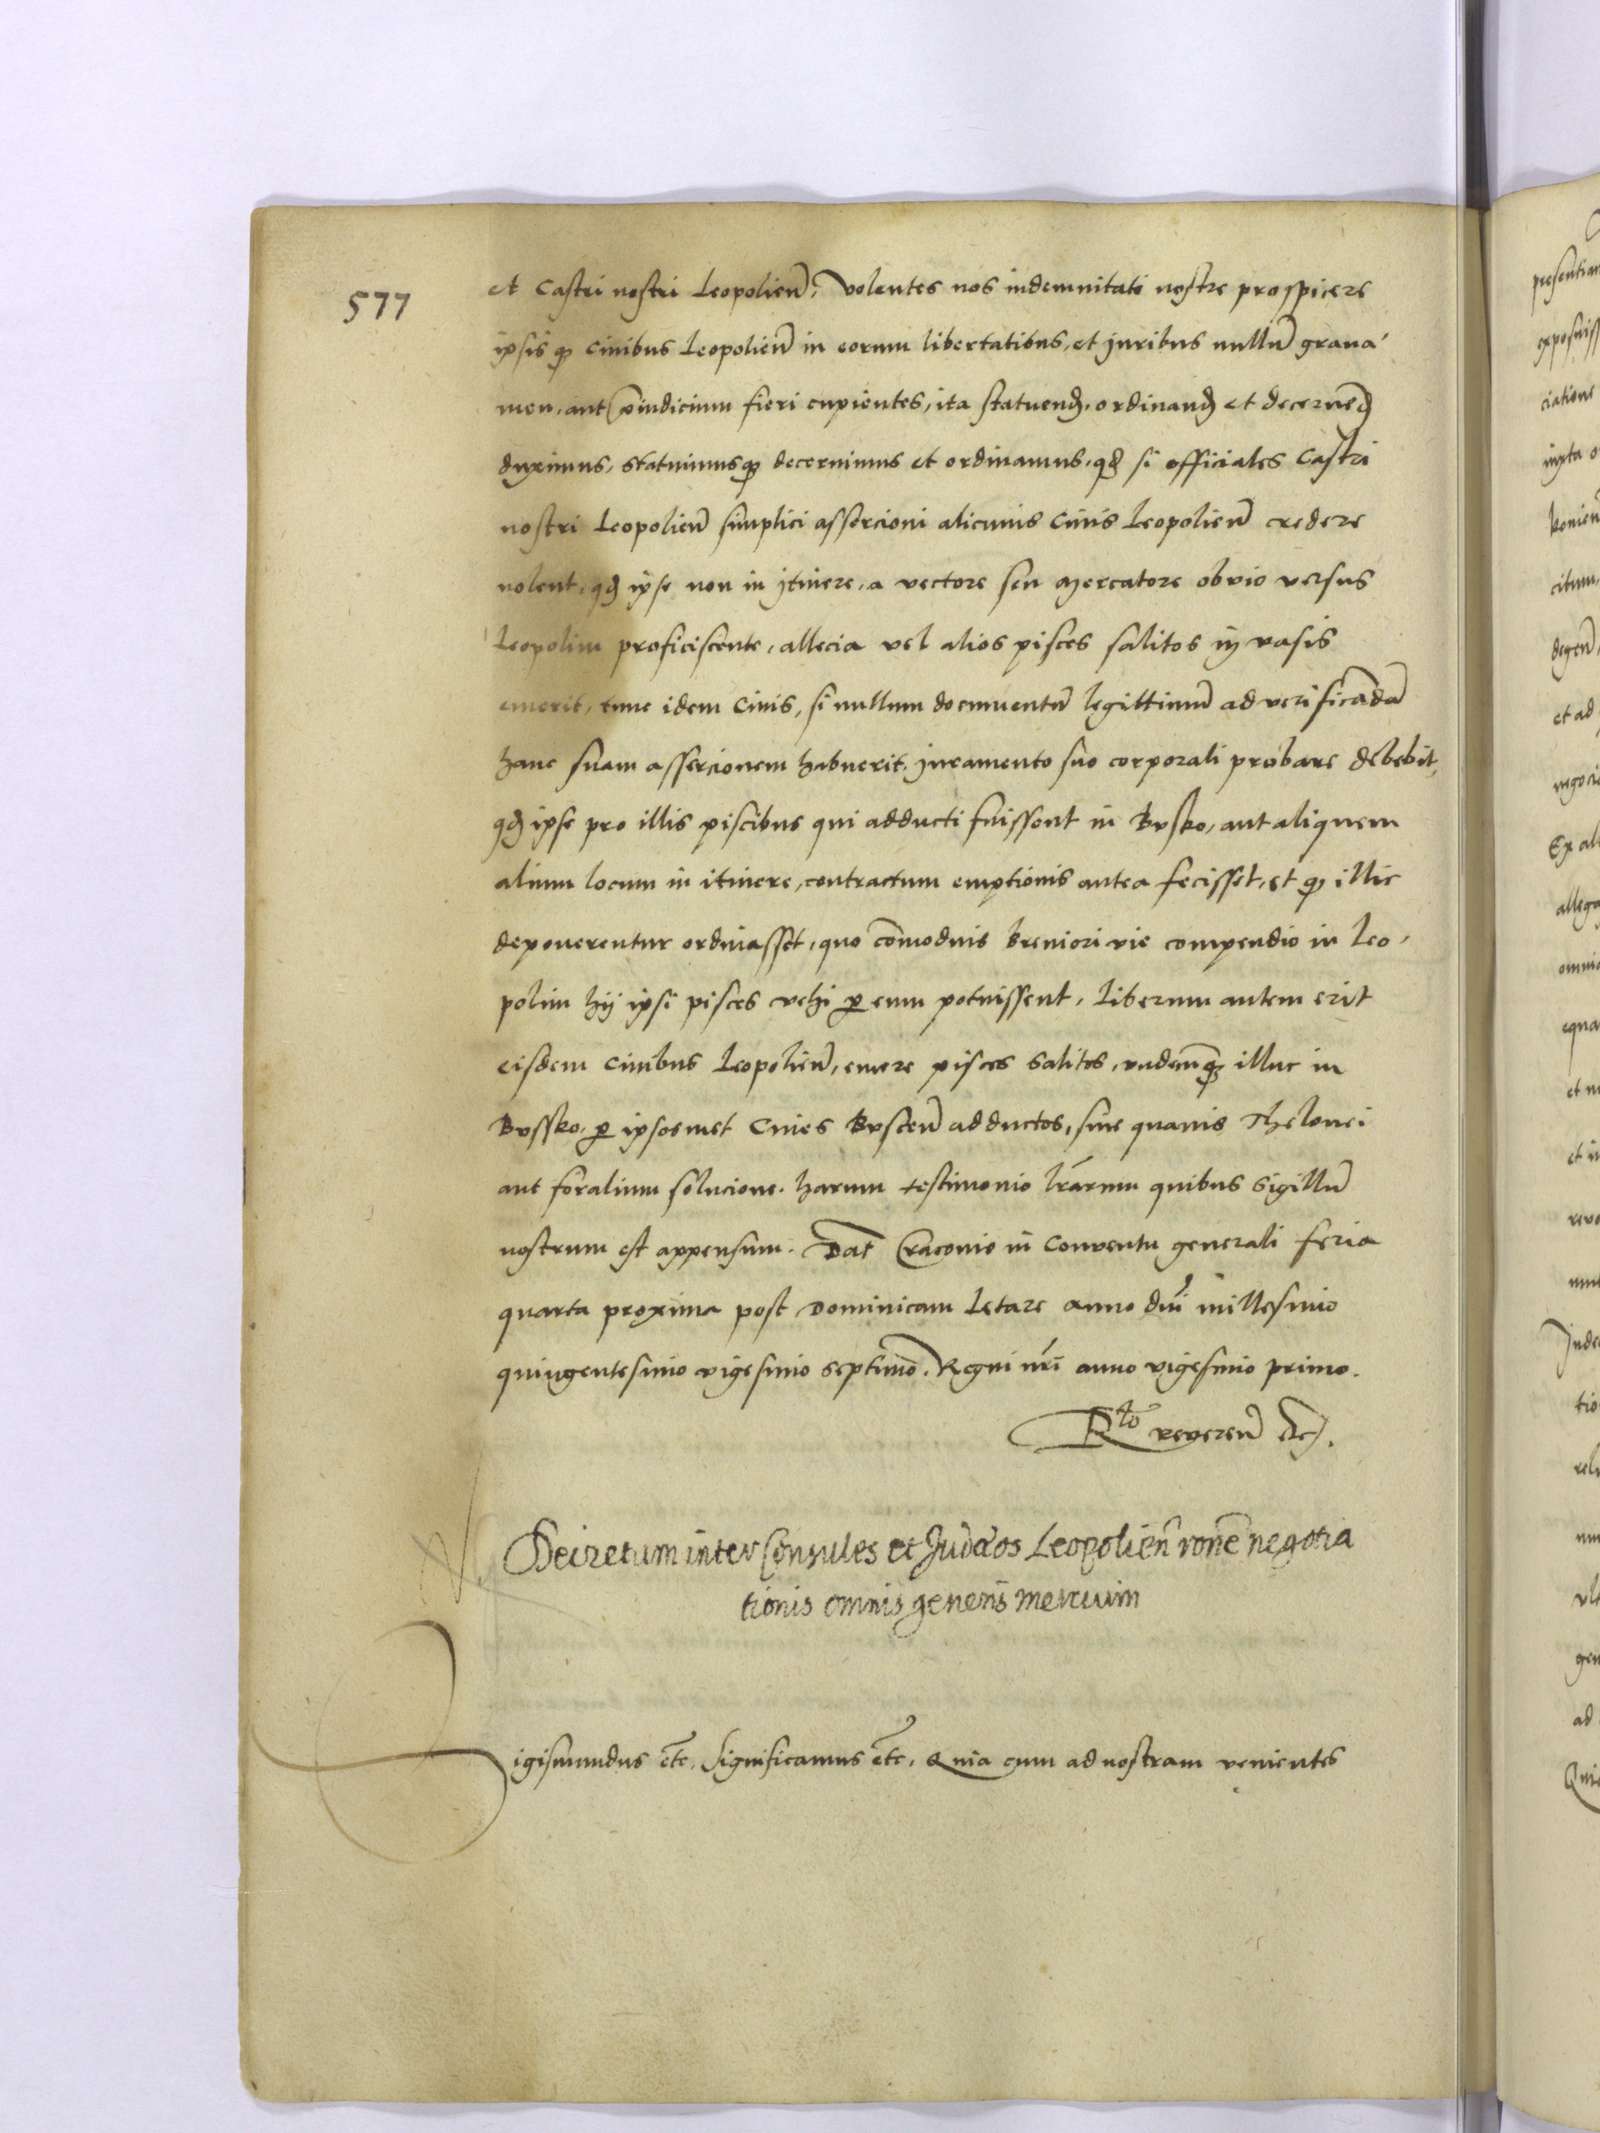 577
et Castri nostri Leopolien̄, Volentes nos indemnitati nostre prospicere
ipsis qȝ Ciuibus Leopolien̄ in eorum libertatibus, et juribus nullū graua
men, aut p̄iudicium fieri cupientes, ita statuend̄, ordinand̄ et decernēd̄
duximus, statuimusqȝ decernimus et ordinamus, qd̄ si officiales Castri
nostri Leopolien̄ simplici assercioni alicuius Ciuis Leopolien̄ credere
nolent, qd̄ ipse non in jtinere, a vectore seu Mercatore obvio versus
Leopolim proficiscente, allecia vel alios pisces salitos in vasis
emerit, tunc idem Ciuis, si nullum documentū legittimū ad verificādā
hanc suam assercionem habuerit, juramento suo corporali probare debebit,
qd̄ ipse pro illis piscibus qui adducti fuissent in Busko, aut aliquem
alium locum in itinere, contractum emptionis antea fecisset, et qȝ illic
deponerentur ordinasset, quo cōmodius breuiori vie compendio in Leo
polim hij ipsi pisces vehi p̱ eum potuissent, Liberum autem erit
eisdem Ciuibus Leopolien̄, emere pisces salitos, vndecūqȝ illuc in
Bussko, p̱ ipsosmet Ciues Buscen̄ adductos, sine quauis Thelonei
aut foralium solucione. harum testimonio lr̄arum quibus Sigillū
nostrum est appensum. Dat̄ Cracouie in Conventu generali feria
quarta proxima post Dominicam Letare anno dn̄i millesimo
quingentesimo vigesimo septimo. Regni nr̄i anno vigesimo primo.
Rto reveren̄ etc.
Decretum inter Consules et Judæos Leopolien̄ rōne negotia
tionis omnis generis mercium
Sigismundus etc. Significamus etc. Quia cum ad nostram venientes